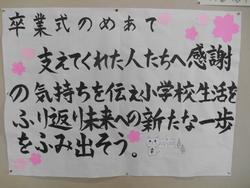 卒業式のめあて
支えてくれた人たちへ感謝
の気持ちを伝え小学校生活を
ふり返り未来への新たな一歩
をふみ出そう。